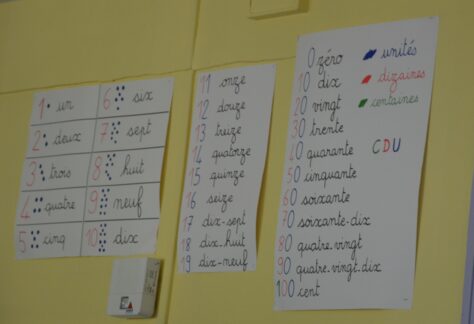 1 un
2 deux
3 trois
4 quatre
5 cinq
6 six
7 sept
8 huit
9 neuf
10 dix
11 onze
12 douze
13 treize
14 quatorze
15 quinze
16 seize
17 dix-sept
18 dix.huit
19 dix-neuf
0 zéro
10 dix
20 vingt
30 trente
40 quarante
50 cinquante
60 soixante
70 soixante-dix
80 quatre-vingt
90 quatre-vingt-dix
100 cent
unités
dizaines
centaines
CDU